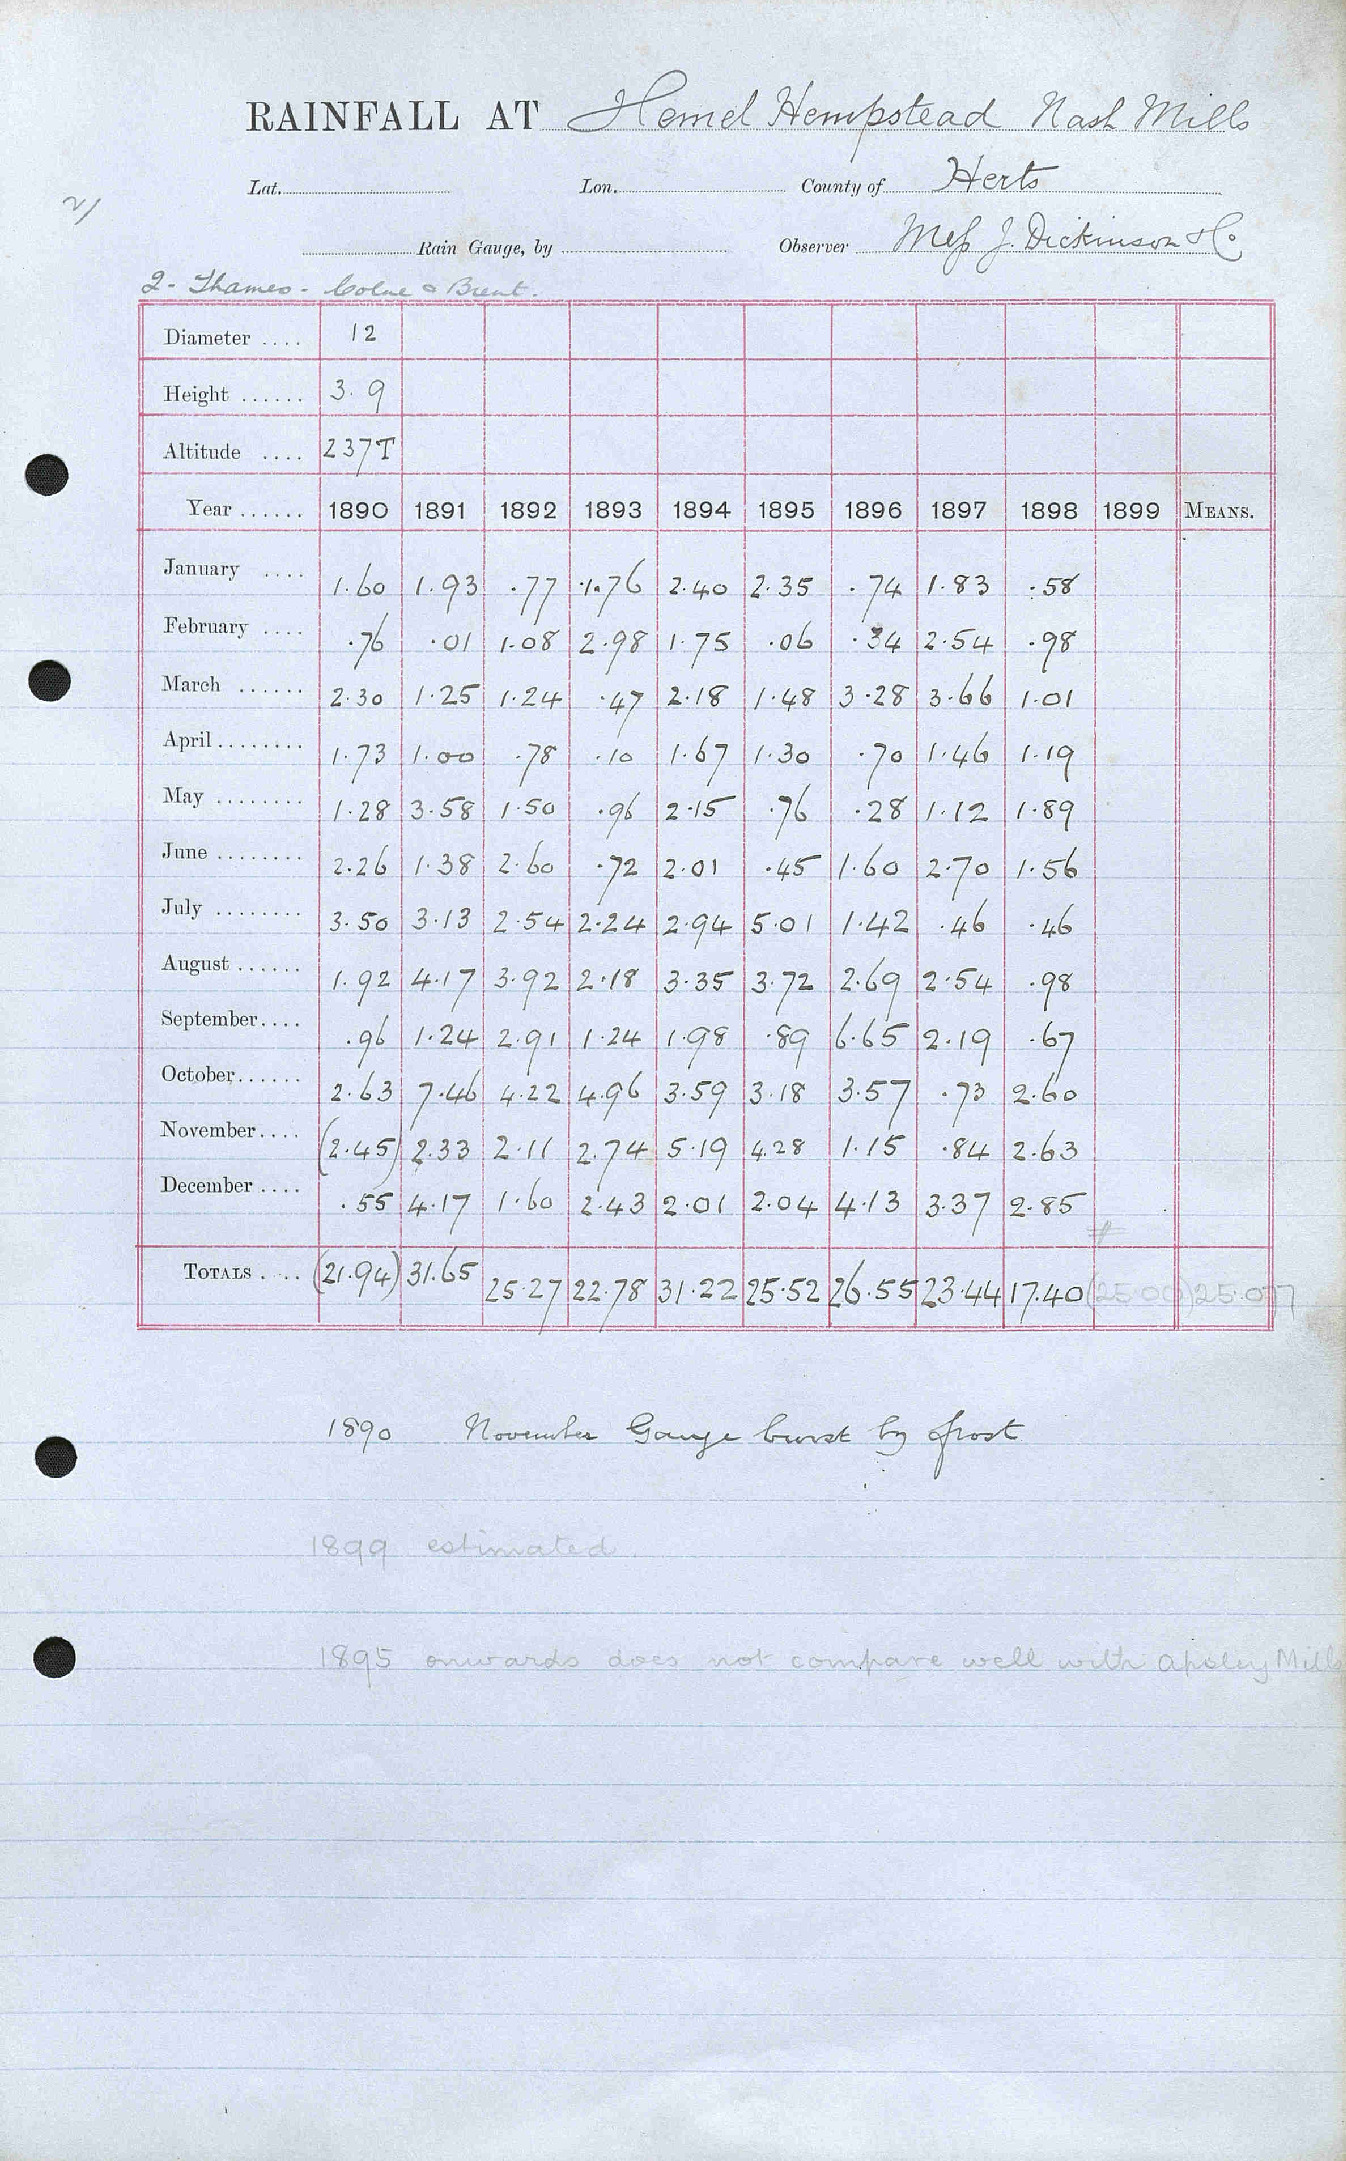 RAINFALL AT Hemel Hempstead Nash Mills
Lat. Lon. County of Herts
2/
Rain Gauge, by Observer Mess J. Dickinson & Co
2 - Thames - Colne & Brent.
Diameter .... 12
Height ...... 3.9
Altitude .... 237T
Year ...... 1890 1891 1892 1893 1894 1895 1896 1897 1898 1899 MEANS.
January .... 1.60 1.93 .77 1.76 2.40 2.35 .74 1.83 .58
February .... .76 .01 1.08 2.98 1.75 .06 .34 2.54 .98
March ...... 2.30 1.25 1.24 .47 2.18 1.48 3.28 3.66 1.01
April ........ 1.73 1.00 .78 .10 1.67 1.30 .70 1.46 1.19
May ........ 1.28 3.58 1.50 .96 2.15 .76 .28 1.12 1.89
June ........ 2.26 1.38 2.60 .72 2.01 .45 1.60 2.70 1.56
July ........ 3.50 3.13 2.54 2.24 2.94 5.01 1.42 .46 .46
August ...... 1.92 4.17 3.92 2.18 3.35 3.72 2.69 2.54 .98
September .... .96 1.24 2.91 1.24 1.98 .89 6.65 2.19 .67
October ...... 2.63 7.46 4.22 4.96 3.59 3.18 3.57 .73 2.60
November .... (2.45) 2.33 2.11 2.74 5.19 4.28 1.15 .84 2.63
December .... .55 4.17 1.60 2.43 2.01 2.04 4.13 3.37 2.85
#
TOTALS .... (21.94) 31.65 25.27 22.78 31.22 25.52 26.55 23.44 17.40 (25.00) 25.077
1890 November Gauge burst by frost
1899 estimated
1895 onwards does not compare well with Apsley Mills